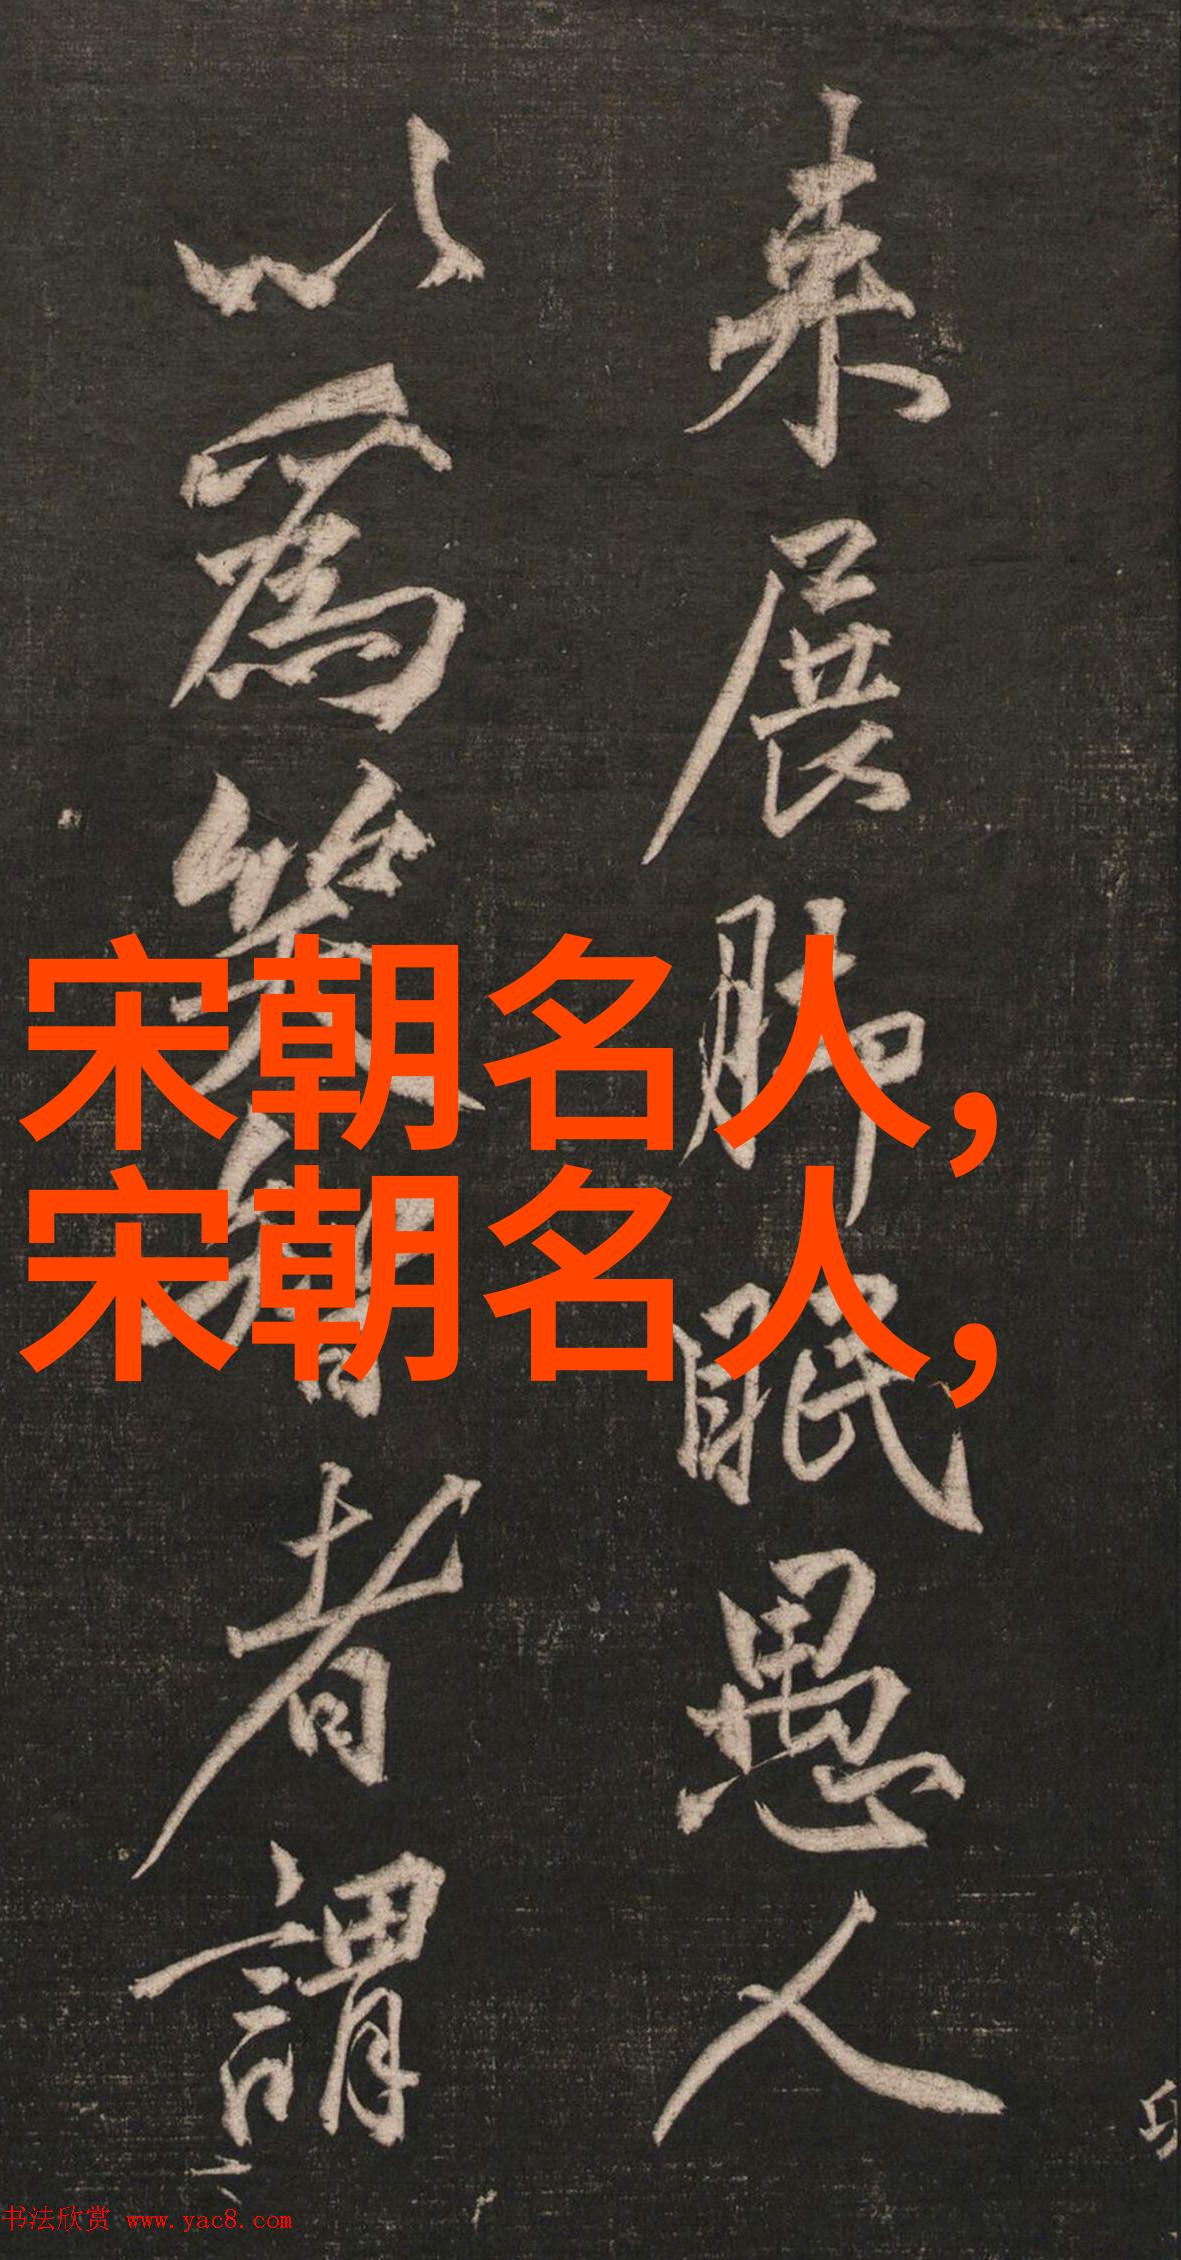 来展脚眠愚人
以為笑智者謂
宋朝名人,
宋朝名人,
书法欣赏 www.yac8.com